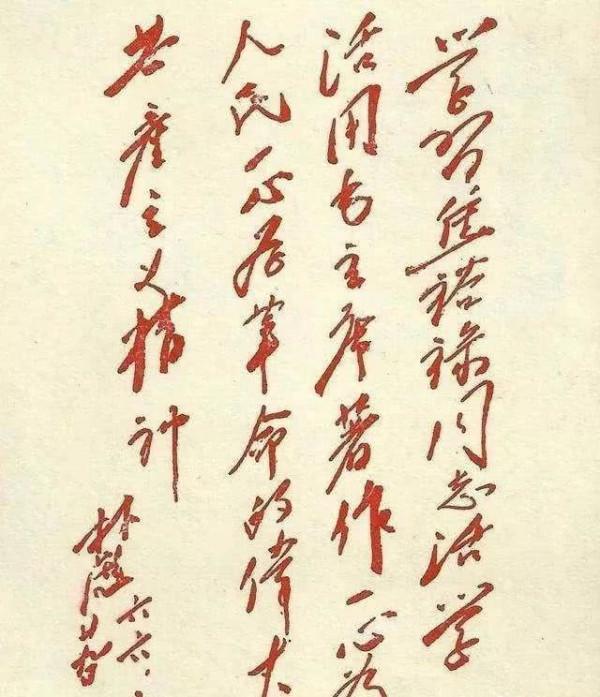 学習焦裕禄同志活学
活用毛主席著作一心为
人民一心为革命的偉大
共產主义精神
六六.